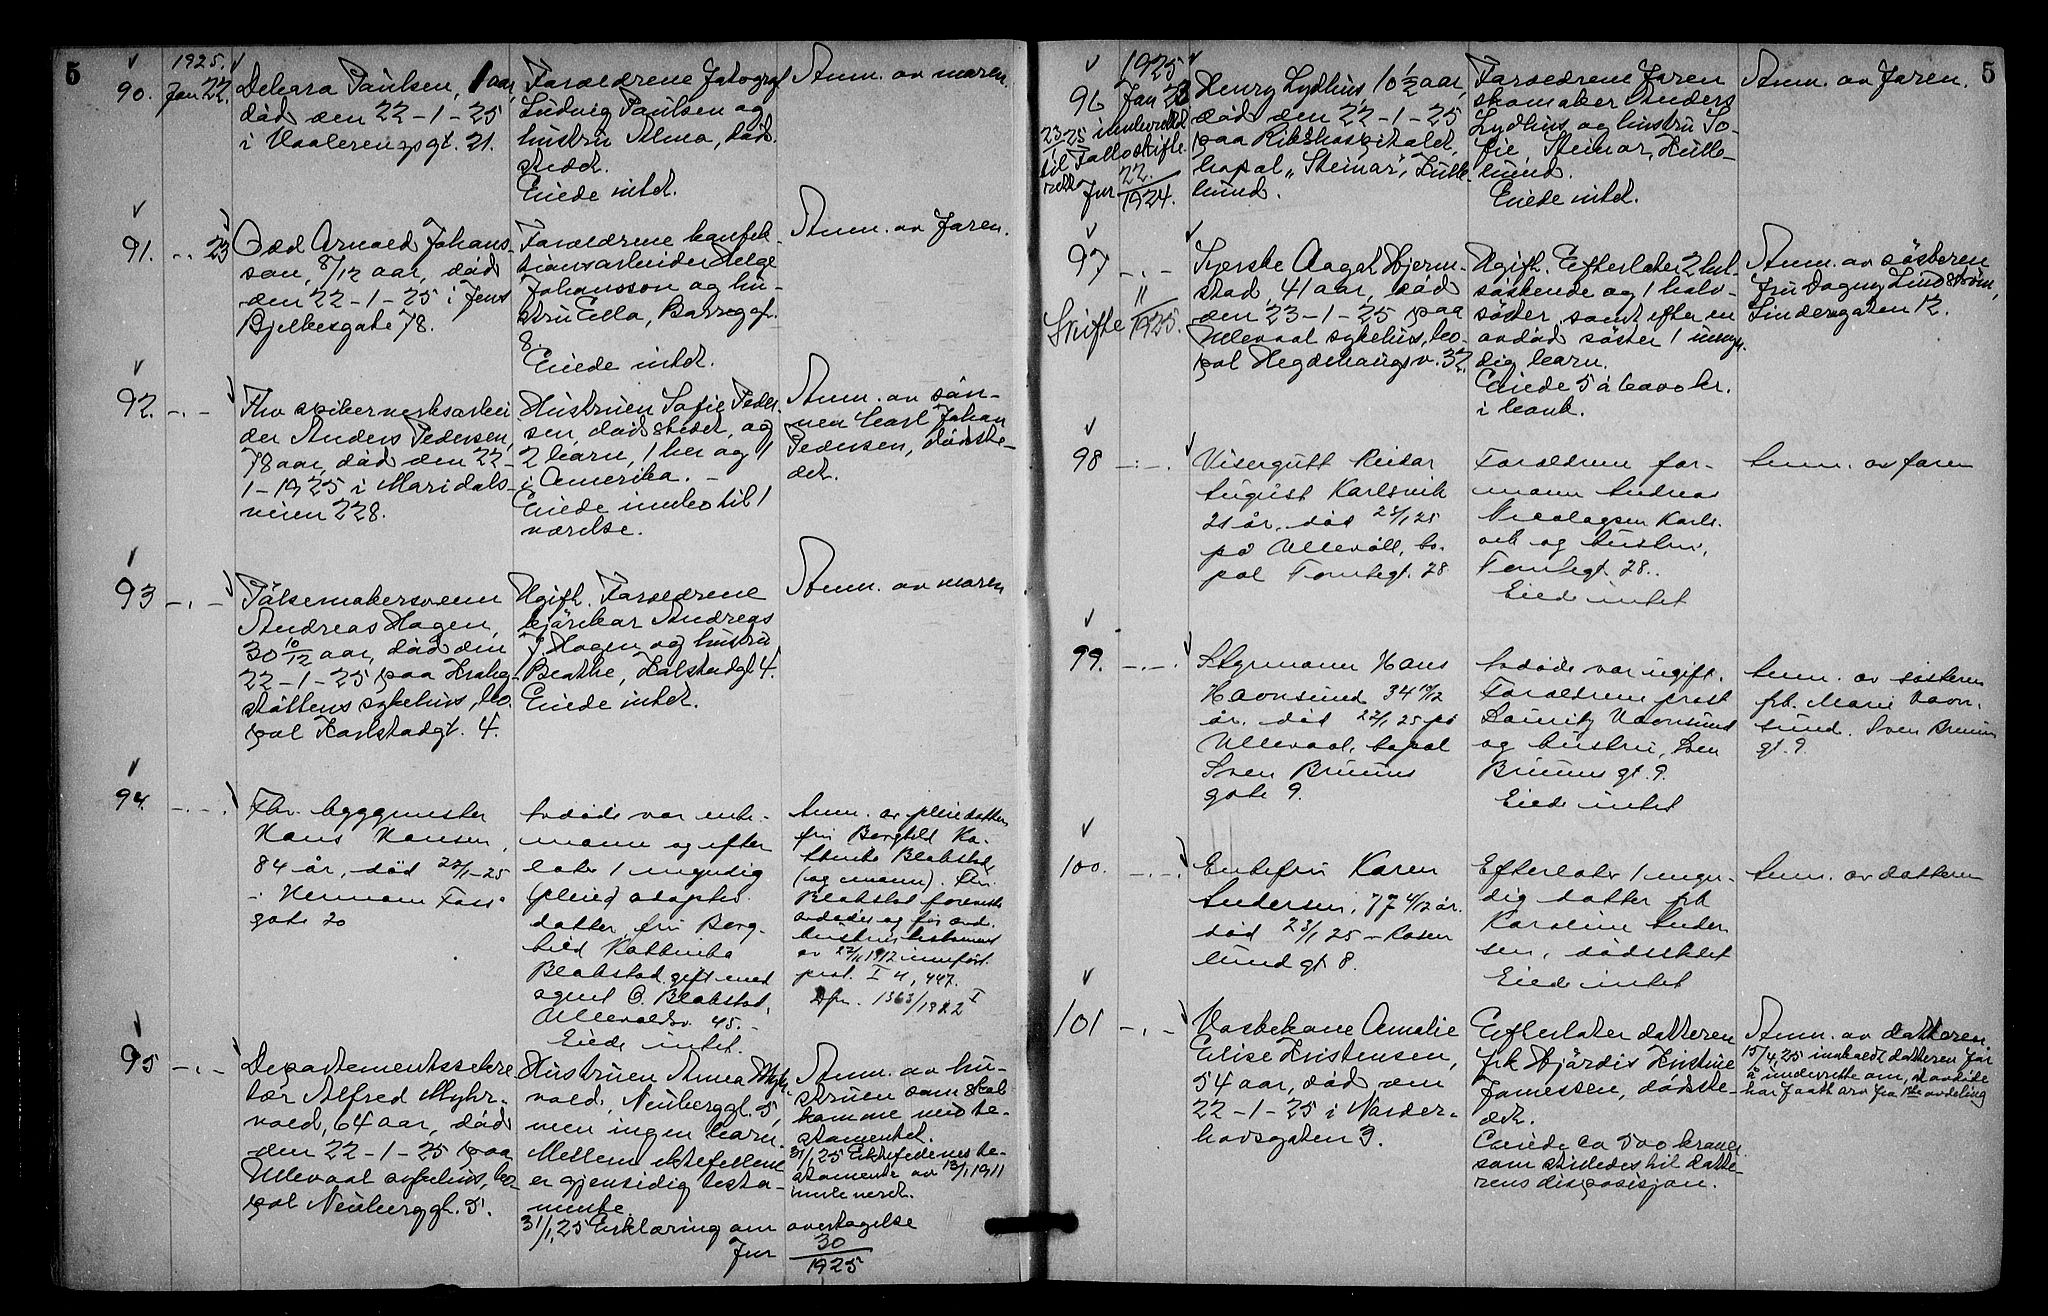 5
1925.
90.
Jan 22.
Debora Paulsen, 1 aar,
død den 22-1-25
i Vaalerengsgt. 21.
Foreldrene fotograf
Ludvig Paulsen og
hustru Alma, død-
stedet.
Eiede intet.
Anm. av moren.
91.
-.- 23
Odd Arnold Johans-
son, 8/12 aar, død
den 22-1-25 i Jens
Bjelkesgate 78.
Foreldrene konfek-
tionsarbeider Helge
Johansson og hu-
stru Ella, Borggt.
8.
Eiede intet.
Anm. av faren.
92.
-.-
Fhv spikerverksarbei
der Anders Pedersen,
78 aar, død den 22-
1-1925 i Maridals-
veien 228.
Hustruen Sofie Peder-
sen, dødstedet, og
2 barn, 1 her og 1
i Amerika.
Eiede innbo til 1
værelse.
Anm. av søn-
nen Carl Johan
Pedersen, dødste-
det.
93
-.-
Pølsemakersvenn
Andreas Hagen,
30 10/12 aar, død den
22-1-25 paa Krohg-
støttens sykehus, bo-
pæl Karlstadgt. 4.
Ugift. Foreldrene
kjørekar Andreas
J. Hagen og hustru
Beathe, Kalstadgt 4.
Eiede intet.
Anm. av moren
94.
-.-
Fhv. byggmester
Hans Hansen,
84 år, død 22/1-25
i Herman Foss'
gate 20
Avdøde var enke-
mann og efter
later 1 myndig
(pleie) adoptiv
datter, fru Borg-
hild Kathinka
Blakstad gift med
agent O. Blakstad,
Ullevoldsv. 45.-
Eiede intet.
Anm. av pleiedatteren
fru Borghild Ka-
thinka Blakstad
(og mann). Fru
Blakstad foreviste
avdødes og før avd.
hustrus testament
av 27/11 1912 innført
prot. I 4, 447.
Dfn. 1363/1922 I
95
-.-
Departementssekre
tær Alfred Myhr-
vold, 64 aar, død
den 22-1-25 paa
Ullevaal sykehus, bo-
pæl Neuberggt. 5.
Hustruen Anna Myhr-
vold, Neuberggt. 5,
men ingen barn.
Mellem ektefellene
er gjensidig testa-
mente.
31/1,25 Erklæring om overtagelse
Jnr 30/1925
Anm. av hu-
struen som skal
komme med te-
stamentet.
31/1,25 Ektefellenes te-
stamente av 13/1 1911
innleveret.
5
1925
96
Jan 23
23/3 25 innberettet
til Follo skifte
rett
Jnr 22./1924.
Henry Lydhus 10 1/2 aar,
død den 22-1-25
paa Rikshospitalet,
bopæl "Steinar", Kulle-
bund.
Foreldrene faren
skomaker Anders
Lydhus og hustru So-
fie, Steinar, Kulle-
bund.
Eiede intet.
Anm. av faren.
97
-.-
Skifte 11/1925.
Syerske Aagot Hjerm-
stad, 41 aar, død
den 23-1-25 paa
Ullevaal sykehus, bo-
pæl Hegdehaugsv. 32.
Ugift. Efterlater 2 hel-
søskende og 1 halv-
søster, samt efter en
avdød søster 1 umyn-
dig barn.
Eiede 5 à 6000 kr.
i bank.
Anm. av søsteren
fru Dagny Lindstrøm,
Lindersgaten 12.
98
-.-
Visergutt Reidar
August Karlsvik
21 år, død 22/1,25
på Ullevåll, bo-
pæl Tomtegt. 28
Foreldrene for-
mann Andreas
Nicolaysen Karls-
vik og hustru,
Tomtegt. 28.
Eiede intet
Anm. av faren
99.
-.-
Styrmann Hans
Havnsund 34 10/12
år, død 22/1,25 på
Ullevaal, bopæl
Sven Bruuns
gate 9.
Avdøde var ugift.
Foreldrene prest
Lauritz Havnsund
og hustru, Sven
Bruuns gt. 9.
Eiede intet
Anm. av søsteren
frk. Marie Havn-
sund, Sven Bruuns
gt. 9.
100.
-.-
Enkefru Karen
Andersen, 77 4/12 år.
død 23/1 25 - Rosen
lund gt 8.
Efterlater 1 myn-
dig datter frk
Karoline Ander
sen, dødsstedet
Eiede intet
Anm. av datteren
101
-.-
Vaskekone Amalie
Elise Kristensen,
54 aar, død den
22-1-25 i Norder-
hovsgaten 3.
Efterlater datteren
frk Hjørdis Kristine
Jamessen, dødste-
det.
Eiede ca 500 kroner
som stilledes til datte-
rens disposisjon.
Anm. av datteren
15/4.25 innkaldt datteren for
å underrette om, at avdøde
har faatt arv fra 1ste avdeling